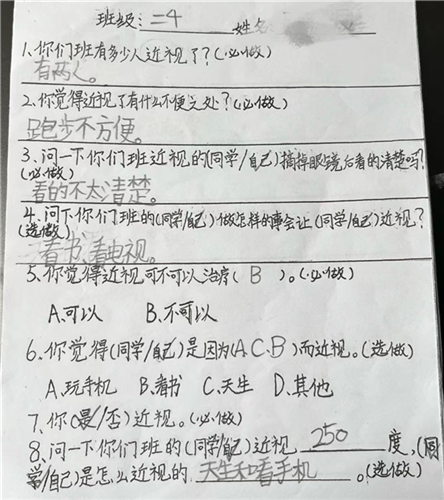 班级:二4 姓名
1、你们班有多少人近视了?(必做)
有两人。
2、你觉得近视了有什么不便之处?(必做)
跑步不方便。
3、问一下你们班近视的(同学/自己)摘掉眼镜后看的清楚吗?
(必做)
看的不太清楚。
4、问下你们班的(同学/自己)做怎样的事会让(同学/自己)近视?
(选做)
看书、看电视。
5、你觉得近视可不可以治疗(B)。(必做)
A、可以 B、不可以
6、你觉得(同学/自己)是因为(A、C、B)而近视。(选做)
A、玩手机 B、看书 C、天生 D、其他
7、你(是/否)近视。(必做)
8、问一下你们班的(同学/自己)近视 250 度,(同
学/自己)是怎么近视的 天生和看手机。(选做)